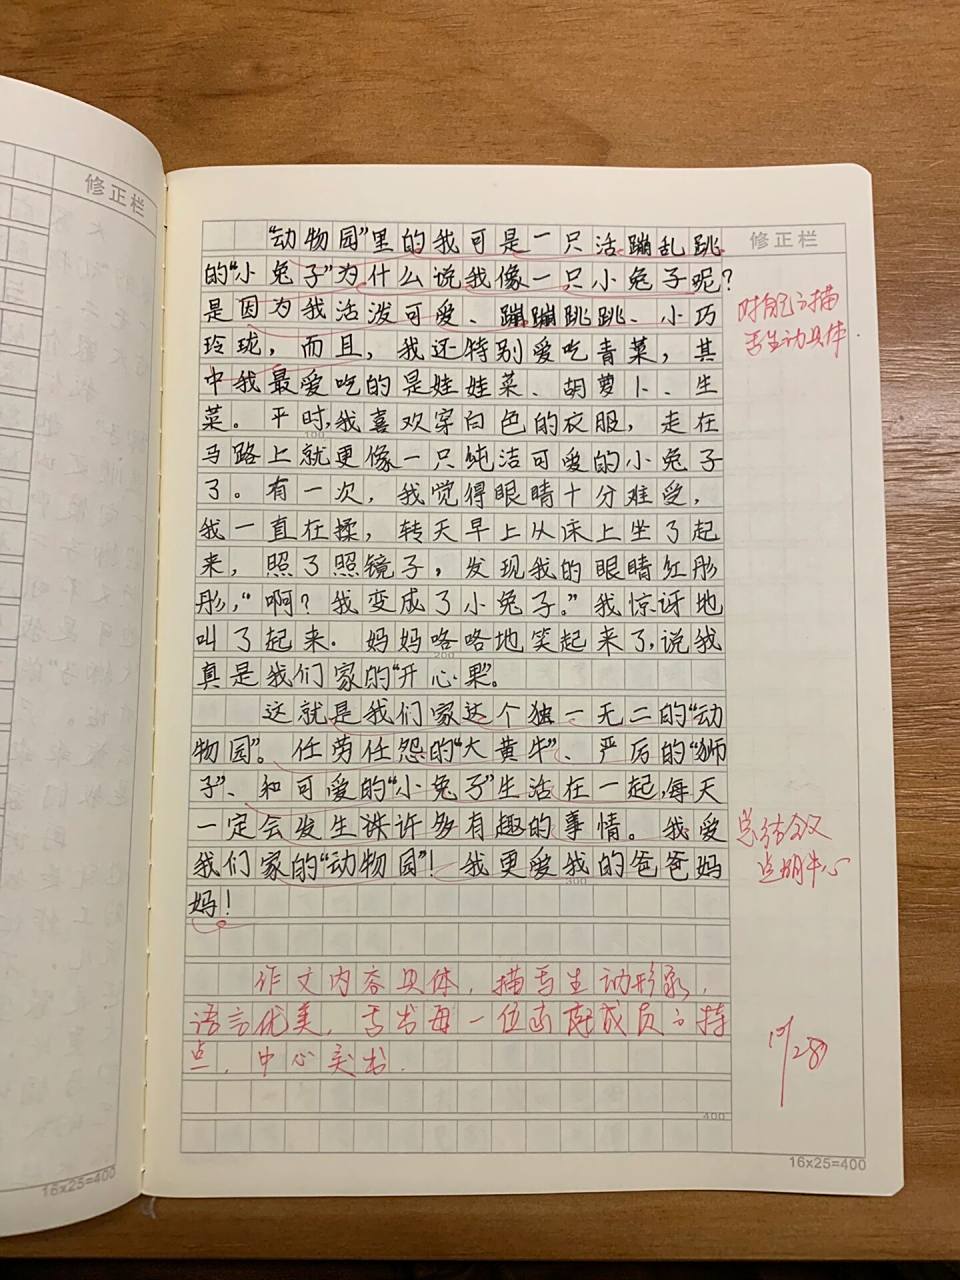 修正栏
修正栏
"动物园"里的我可是一只活蹦乱跳
的"小兔子"为什么说我像一只小兔子呢?
是因为我活泼可爱、蹦蹦跳跳、小巧
玲珑，而且，我还特别爱吃青菜，其
中我最爱吃的是娃娃菜、胡萝卜、生
菜。平时，我喜欢穿白色的衣服，走在
马路上就更像一只纯洁可爱的小兔子
了。有一次，我觉得眼睛十分难受，
我一直在揉，转天早上从床上坐了起
来，照了照镜子，发现我的眼睛红彤
彤，"啊？我变成了小兔子。"我惊讶地
叫了起来.妈妈咯咯地笑起来了，说我
真是我们家的"开心果"。
这就是我们家这个独一无二的"动
物园"。任劳任怨的"大黄牛"、严厉的"狮
子"、和可爱的"小兔子"生活在一起，每天
一定会发生许许多多有趣的事情。我爱
我们家的"动物园"！我更爱我的爸爸妈
妈！
对自己的描
写生动具体.
总结全文
点明中心
作文内容具体，描写生动形象，
语言优美，写出每一位家庭成员的特
点，中心突出.
10/28
100
200
300
400
16x25=400
16x25=400